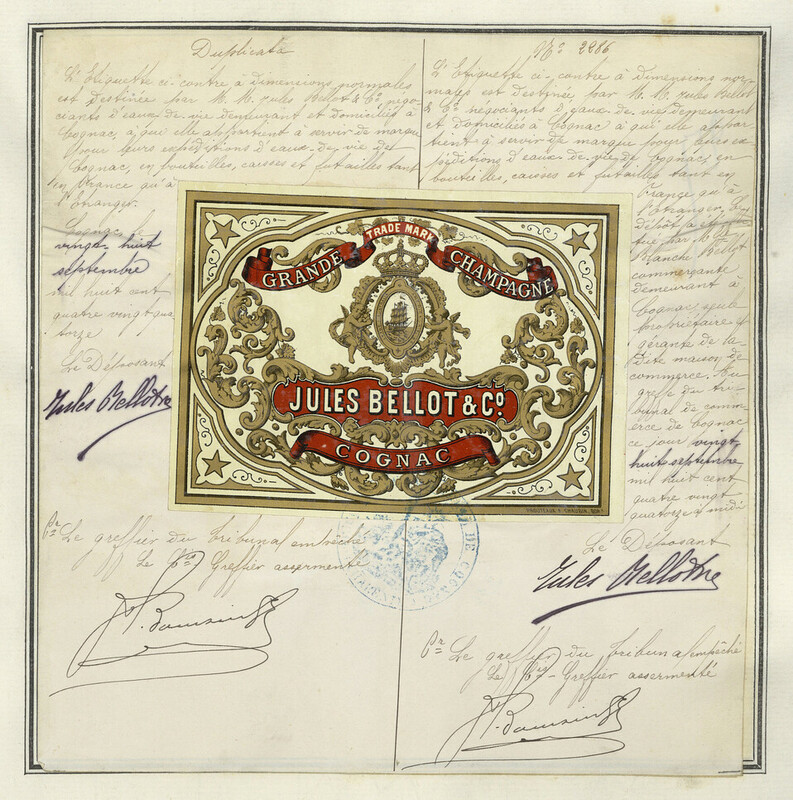 Duplicata
L'Etiquette ci-contre à dimensions normales
est destinée par M. M. Jules Bellot & Cie négo-
ciants d'eaux-de-vie demeurant et domiciliés à
Cognac, à qui elle appartient à servir de marque
pour leurs expéditions d'eaux-de-vie de
Cognac, en bouteilles, caisses et futailles tant
en France qu'à
l'étranger.
Cognac, le
vingt-huit
septembre
mil huit cent
quatre vingt qua
torze
Le Déposant
Jules Bellot
Pr Le greffier du tribunal empêché
Le Greffier assermenté
No 2286
L'Etiquette ci-contre à dimensions nor-
males est destinée par M. M. Jules Bellot
& Cie négociants d'eaux-de-vie demeurant
et domiciliés à Cognac à qui elle appar
tient à servir de marque pour leurs ex-
péditions d'eaux-de-vie de Cognac, en
bouteilles, caisses et futailles tant en
France qu'à
l'étranger.
Dépôt a été
tué par
Blanche Bellot
commerçante
demeurant à
Cognac seule
propriétaire &
gérante de la
dite maison de
commerce. Au
greffe du tri
bunal de comm
erce de Cognac
ce jour vingt
huit septembre
mil huit cent
quatre vingt
quatorze à midi
Le Déposant
Jules Bellot
Pr Le greffier du tribunal empêché
Le Greffier assermenté
TRADE MARK
GRANDE CHAMPAGNE
JULES BELLOT & Co.
COGNAC